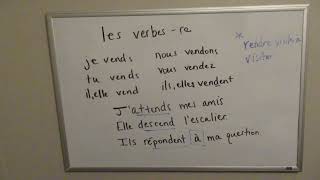 les verbes -re
je vends nous vendons
tu vends vous vendez
il, elle vend ils, elles vendent
J'attends mes amis
Elle descend l'escalier.
Ils répondent à ma question.
* rendre visite à
visiter